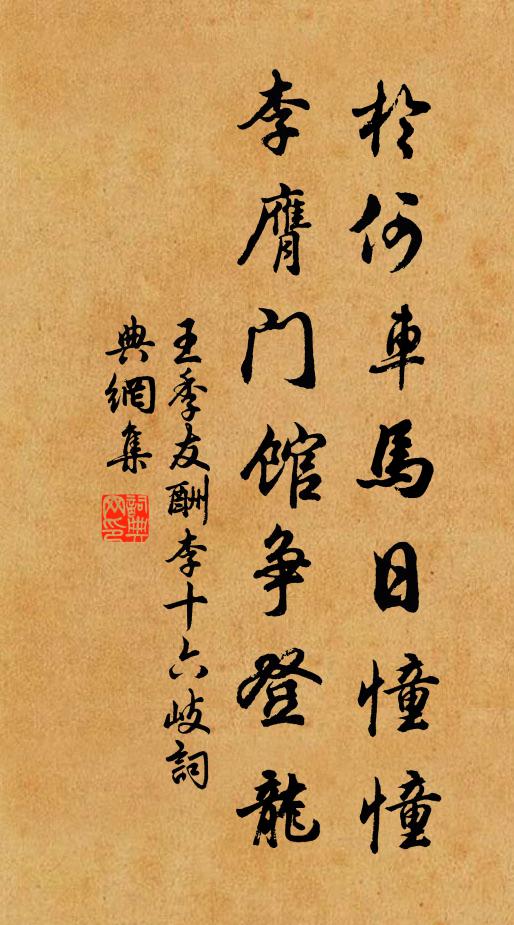 於何車馬日憧憧
李膺門館争登龍
王季友酬李十六岐詞
典網集
詞典網印